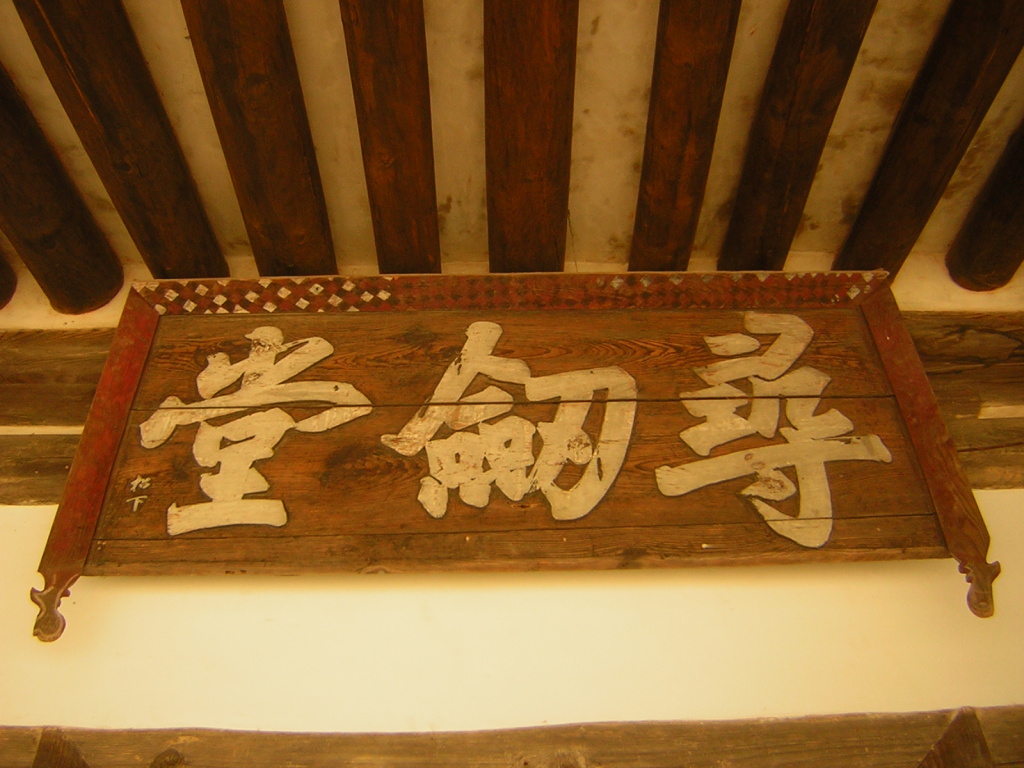 尋劔堂
松下